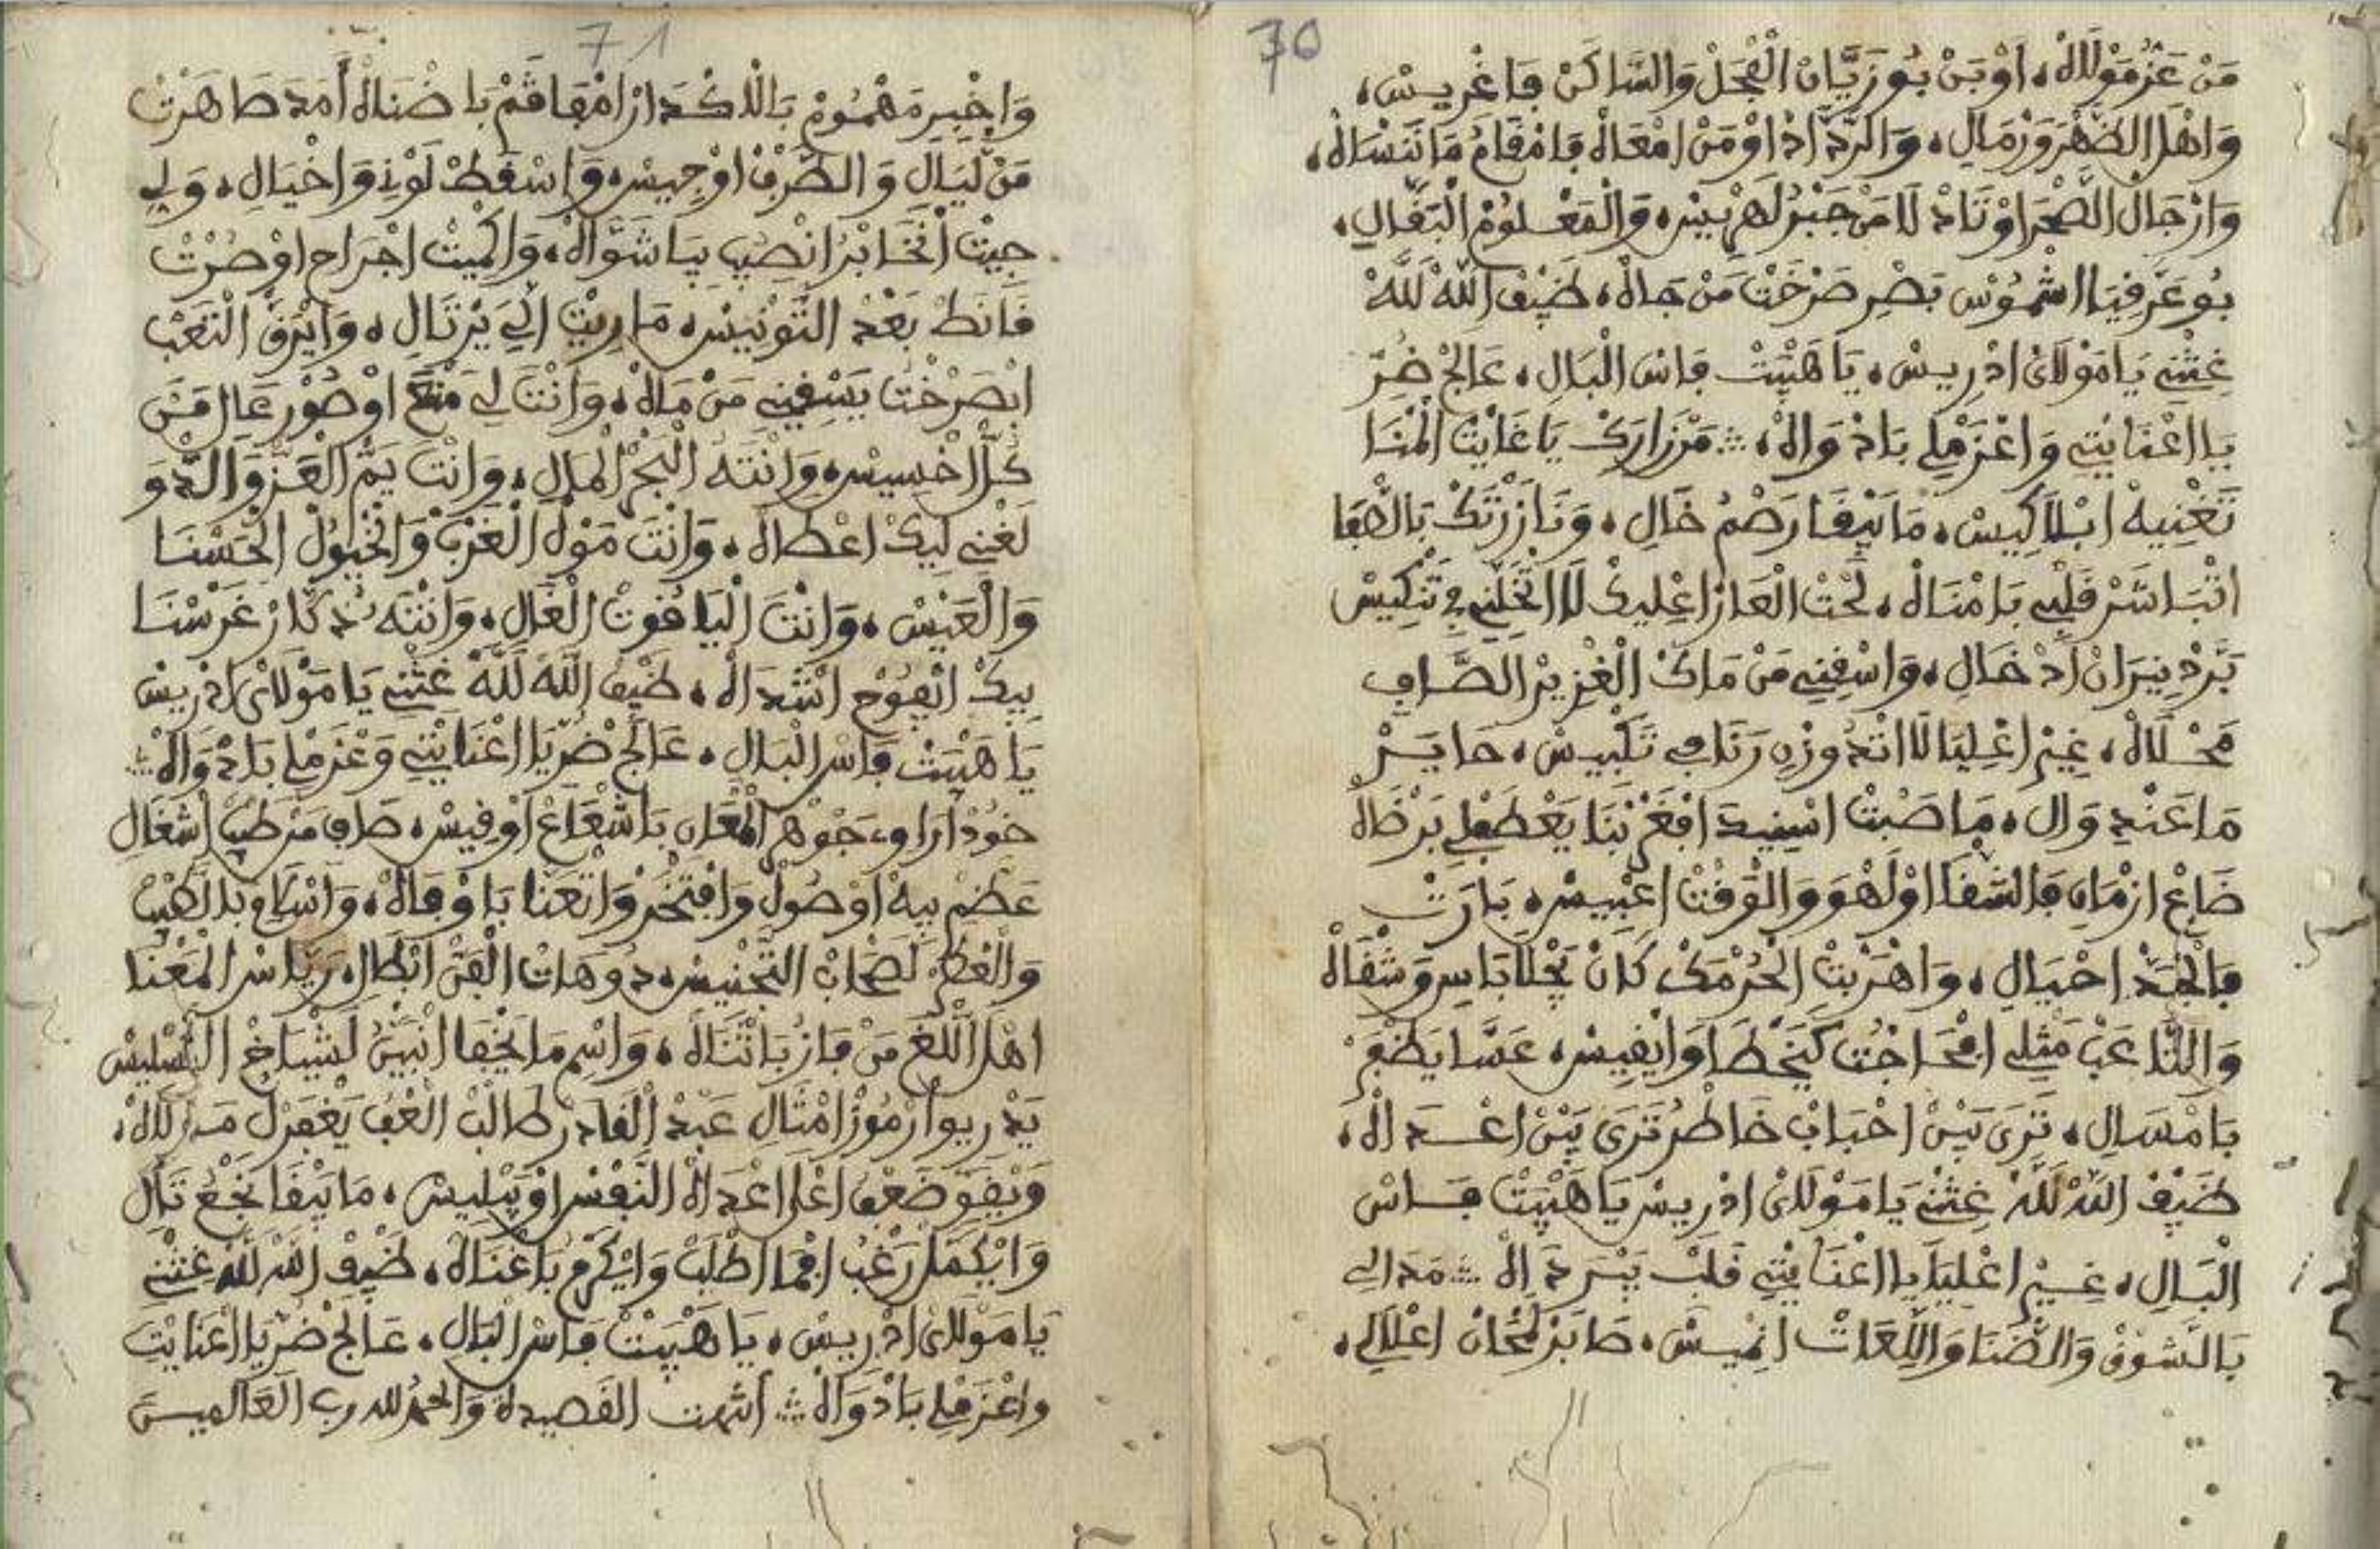 70
مَنْ عَزْ مَوْلَالْ، اَوْبَنْ بُوزَيَّانْ الْفْحَلْ وَالسَّاكَنْ فِاغْرِيسْ،
وَاهْلْ الظَّهْرَ وَرْمَالِ، وَالرَّدَّادْ اوْمَنْ امْعَاهْ فَامْقَامُ مَانَنْسَاهْ،
وَارْجَالْ الصَّحْرَ اوْتَادْ لَامَنْ جَبْرُلَهُمْ بِيسْ، وَالْمَعْلُومْ الْبَقَّالِ،
بُوعَزَّ فِيَا الشْمُوسْ بَصْرِ صَرْخَتْ مَنْ جَاهْ، ضَيْفْ اللَّهْ لَلَّهْ
غِثْنِي يَامَوْلَايْ ادْرِيسْ، يَا هَيْبَتْ فَاسْ الْبَالِ، عَالَجْ ضُرِّ
يَا اعْنَايْتِي وَاعْزَمْلِي بَادْوَاهْ، مَنْ زَارَكْ يَا غَايْتْ الْمُنَا
تَغْنِيهْ ابْلَاكِيسْ، مَايَبْقَا رَصْمُ خَالِ، وَنَا زَرْتَكْ بَاللْهْفَا
اتْبَاشَّرْ قَلْبِي بَامْنَاهْ، لَحْتْ الْعَارْ اعْلِيكْ لَا اتْخَلِّنِي فِي تَنْكِيسْ
بَرَّدْ نِيرَانْ ادْخَالِ، وَاسْقِنِي مَنْ مَاكْ الْغْزِيرْ الصَّافِ
مَحْلَاهْ، غِيرْ اعْلِيَا لَا اتْدُوزْ رَنَا فِي تَكْبِيسْ، حَايَرْ
مَاعَنْدِ وَالِ، مَاصَبْتْ اسْنِيدَ افْغَرْبْنَا يَعْطَفْلِي بَرْضَاهْ
ضَاعْ ازْمَانِ فَالشْقَا اوْلَهْوَ وَالْوَقْتْ اعْبِيسْ، بَارَتْ
فَالْجَدْ احْيَالِ، وَاهْرَبْتْ الْحُرْمَكْ كَانْ يَجْلَا بَاسِ وَشْقَاهْ
وَالتَّاعَبْ مَثْلِي افْحَاجْتُ كَيَخْطَا وَايْفِيسْ، عَسَّا يَظْفَرْ
بَامْسَالِ، تَرَى بَيْنْ احْبَابْ خَاطْرُ تَرَى بَيْنْ اعْدَاهْ،
ضَيْفْ اللَّهْ لَلَّهْ غِثْنِي يَامَوْلَايْ ادْرِيسْ يَا هَيْبَتْ فَاسْ
الْبَالِ، غِيرْ اعْلِيَا يَا اعْنَايْتِي قَلْبْ يَبْرَدَاهْ مَدَالِي
بَالشَوْقْ وَالضَّنَا وَاللِّعَاتْ انْمِيسْ، صَابَرْ لَمْحَانْ اعْلَالِي،
71
وَاخْبِرْ مَهْمُومْ بَالْاكْدَارْ امْفَاقَمْ بَاضْنَاهْ أَمَدَ صَاهَرْتْ
مَنْ لِيَالِ وَالطَّرْفْ اوْجِيسْ، وَاسْقَطْ لَوْنِ وَاخْيَالِ، وَلِي
جِيتْ انْخَابْرُ انْصِبْ بِيَا شَوَّاهْ، وَاكْمِيتْ اجْرَاحِ اوْصُرْتْ
قَانَطْ بَعْدْ التَّوْنِيسْ، مَارِيتْ الِّي يَرْتَالِ، وَايْرَقْ التَعْبْ
ابْصَرْخْتُ يَسْقِينِي مَنْ مَاهْ، وَانْتَ لِي مَنْعَ اوْصُورْ عَالِ مَنْ
كُلْ اخْسِيسْ، وَانْتَهْ الْبْحَرْ الْمَالِ، وَانْتْ يَمَّ الْعَزْ وَالدَّوَ
لَغْنِي لِيكْ اعْطَاهْ، وَانْتَ مَوْلْ الْغَرْبْ وَالْخْيُولْ الْحَسْنَا
وَالْعَيْسْ، وَانْتَ الْيَاقُوتْ الْغَالِ، وَانْتَهْ بُدْكَّارْ غَرْسْنَا
بِيكْ ايْفُوحْ انْدَاهْ، ضَيْفْ اللَّهْ لَلَّهْ غِثْنِي يَا مَوْلَايْ ادْرِيسْ
يَا هَيْبَتْ فَاسْ الْبَالِ، عَالَجْ ضُرِّ يَا اعْنَايْتِي وَعْزَمْلِي بَادْوَاهْ
خُودْ ارَاوِ جَوْهَرْ الْمْعَانِ بَاشْعَاعْ اوْفِيسْ، صَافِ مَنْ طَبْ اشْغَالِ
عَظَّمْ بِيهْ اوْصُولْ وَافْتَخْرْ وَاتْعَنَا بَاوْفَاهْ، وَاسْلَامِ بَالْهْبْ
وَالْعْطَرْ لَصْحَابْ التَّجْنِيسْ، دُوهَاتْ الْفَنْ ابْطَالِ، رِيَاسْ الْمَعْنَا
اهْلْ اللْغَ مَنْ فَازُ بَاثْنَاهْ، وَاسْمِ مَايَخْفَا انْبَيْنُ لَشْيَاخْ التَسْلِيسْ
يَدْرِيوْ ارْمُوزْ امْثَالِ عَبْدْ الْقَادَرْ طَالَبْ الْعْفُ يَغْفَرْلْ مَوْلَاهْ،
وَيْقَوِّ ضَعْفُ اعْلَا اعْدَاهْ النَفْسْ اوْيَبْلِيسْ، مَايَبْقَا نَجْعُ تَالِ
وَايْكَمَّلْ رَغْبُ افْمَا اطْلَبْ وَايْكَرْمُ بَاغْنَاهْ، ضَيْفْ اللَّهْ لَلَّهْ غِثْنِي
يَامَوْلَايْ ادْرِيسْ، يَا هَيْبَتْ فَاسْ الْبَالِ، عَالَجْ ضُرِّ يَا اعْنَايْتِ
وَاعْزَمْلِي بَادْوَاهْ انتهت القصيدة وَالحمد لله رب الْعَالمين